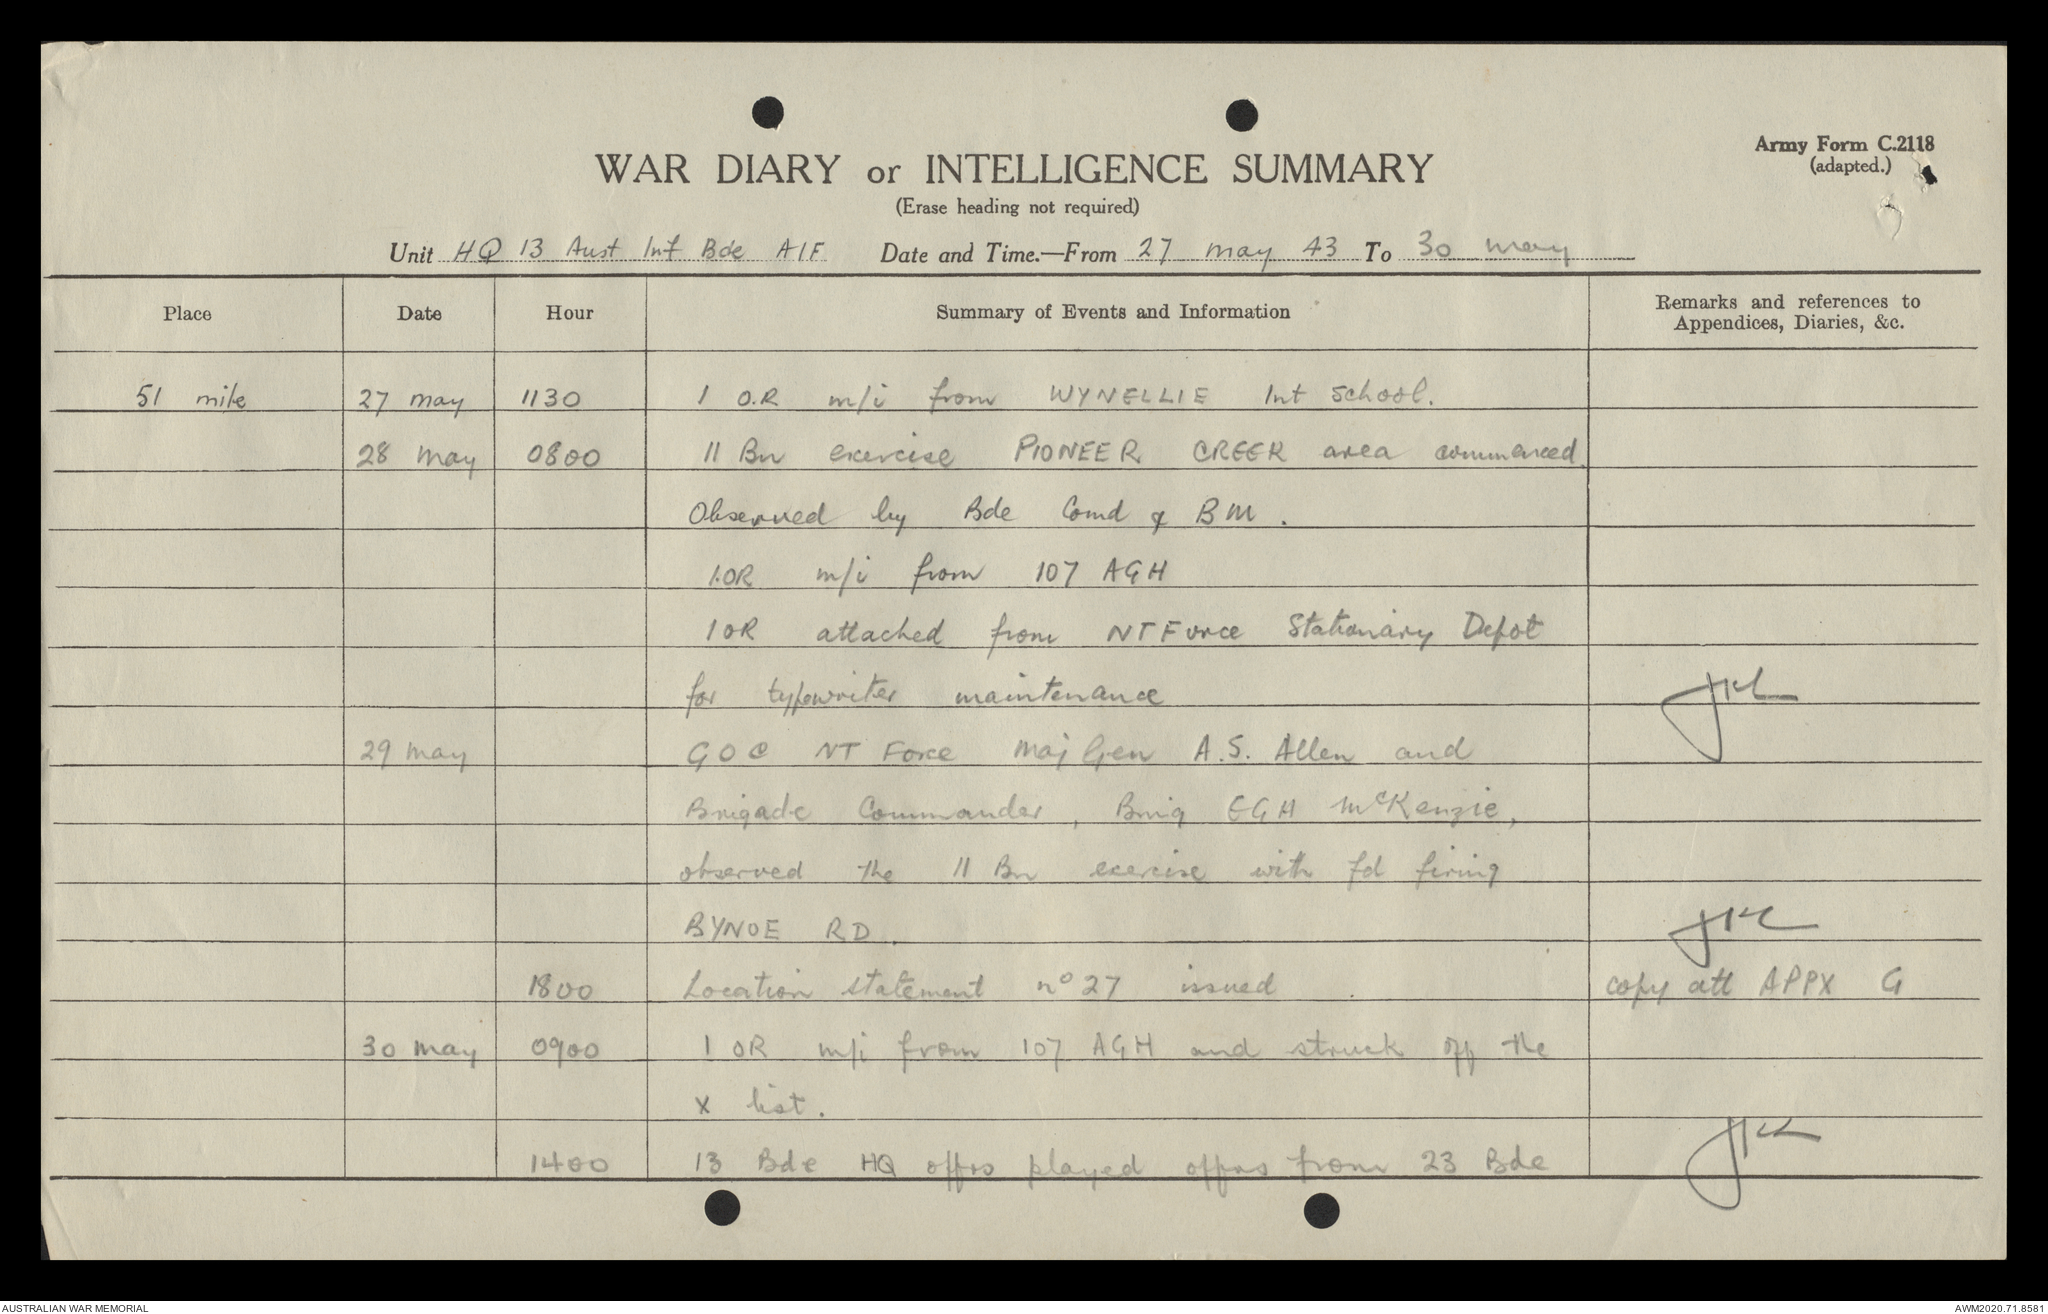 Army Form C.2118
(adapted.)
WAR DIARY or INTELLIGENCE SUMMARY
(Erase heading not required)
Unit HQ 13 Aust Inf Bde AIF Date and Time.—From 27 May 43 To 30 May
Place Date Hour Summary of Events and Information Remarks and references to
Appendices, Diaries, &c.
51 mile 27 May 1130 1 O.R m/i from WYNELLIE Int School.
28 May 0800 11 Bn exercise PIONEER CREEK area commenced.
Observed by Bde Comd & BM.
1.OR m/i from 107 AGH
1 OR attached from NT Force Stationary Depot
for typewriter maintenance
29 May GOC NT Force Maj Gen A.S. Allen and
Brigade Commander, Brig EGH McKenzie,
observed the 11 Bn exercise with fd firing
BYNOE RD.
1800 Location statement no 27 issued copy att APPX G
30 May 0900 1 OR m/i from 107 AGH and struck off the
X list.
1400 13 Bde HQ offrs played offrs from 23 Bde
AUSTRALIAN WAR MEMORIAL AWM2020.71.8581